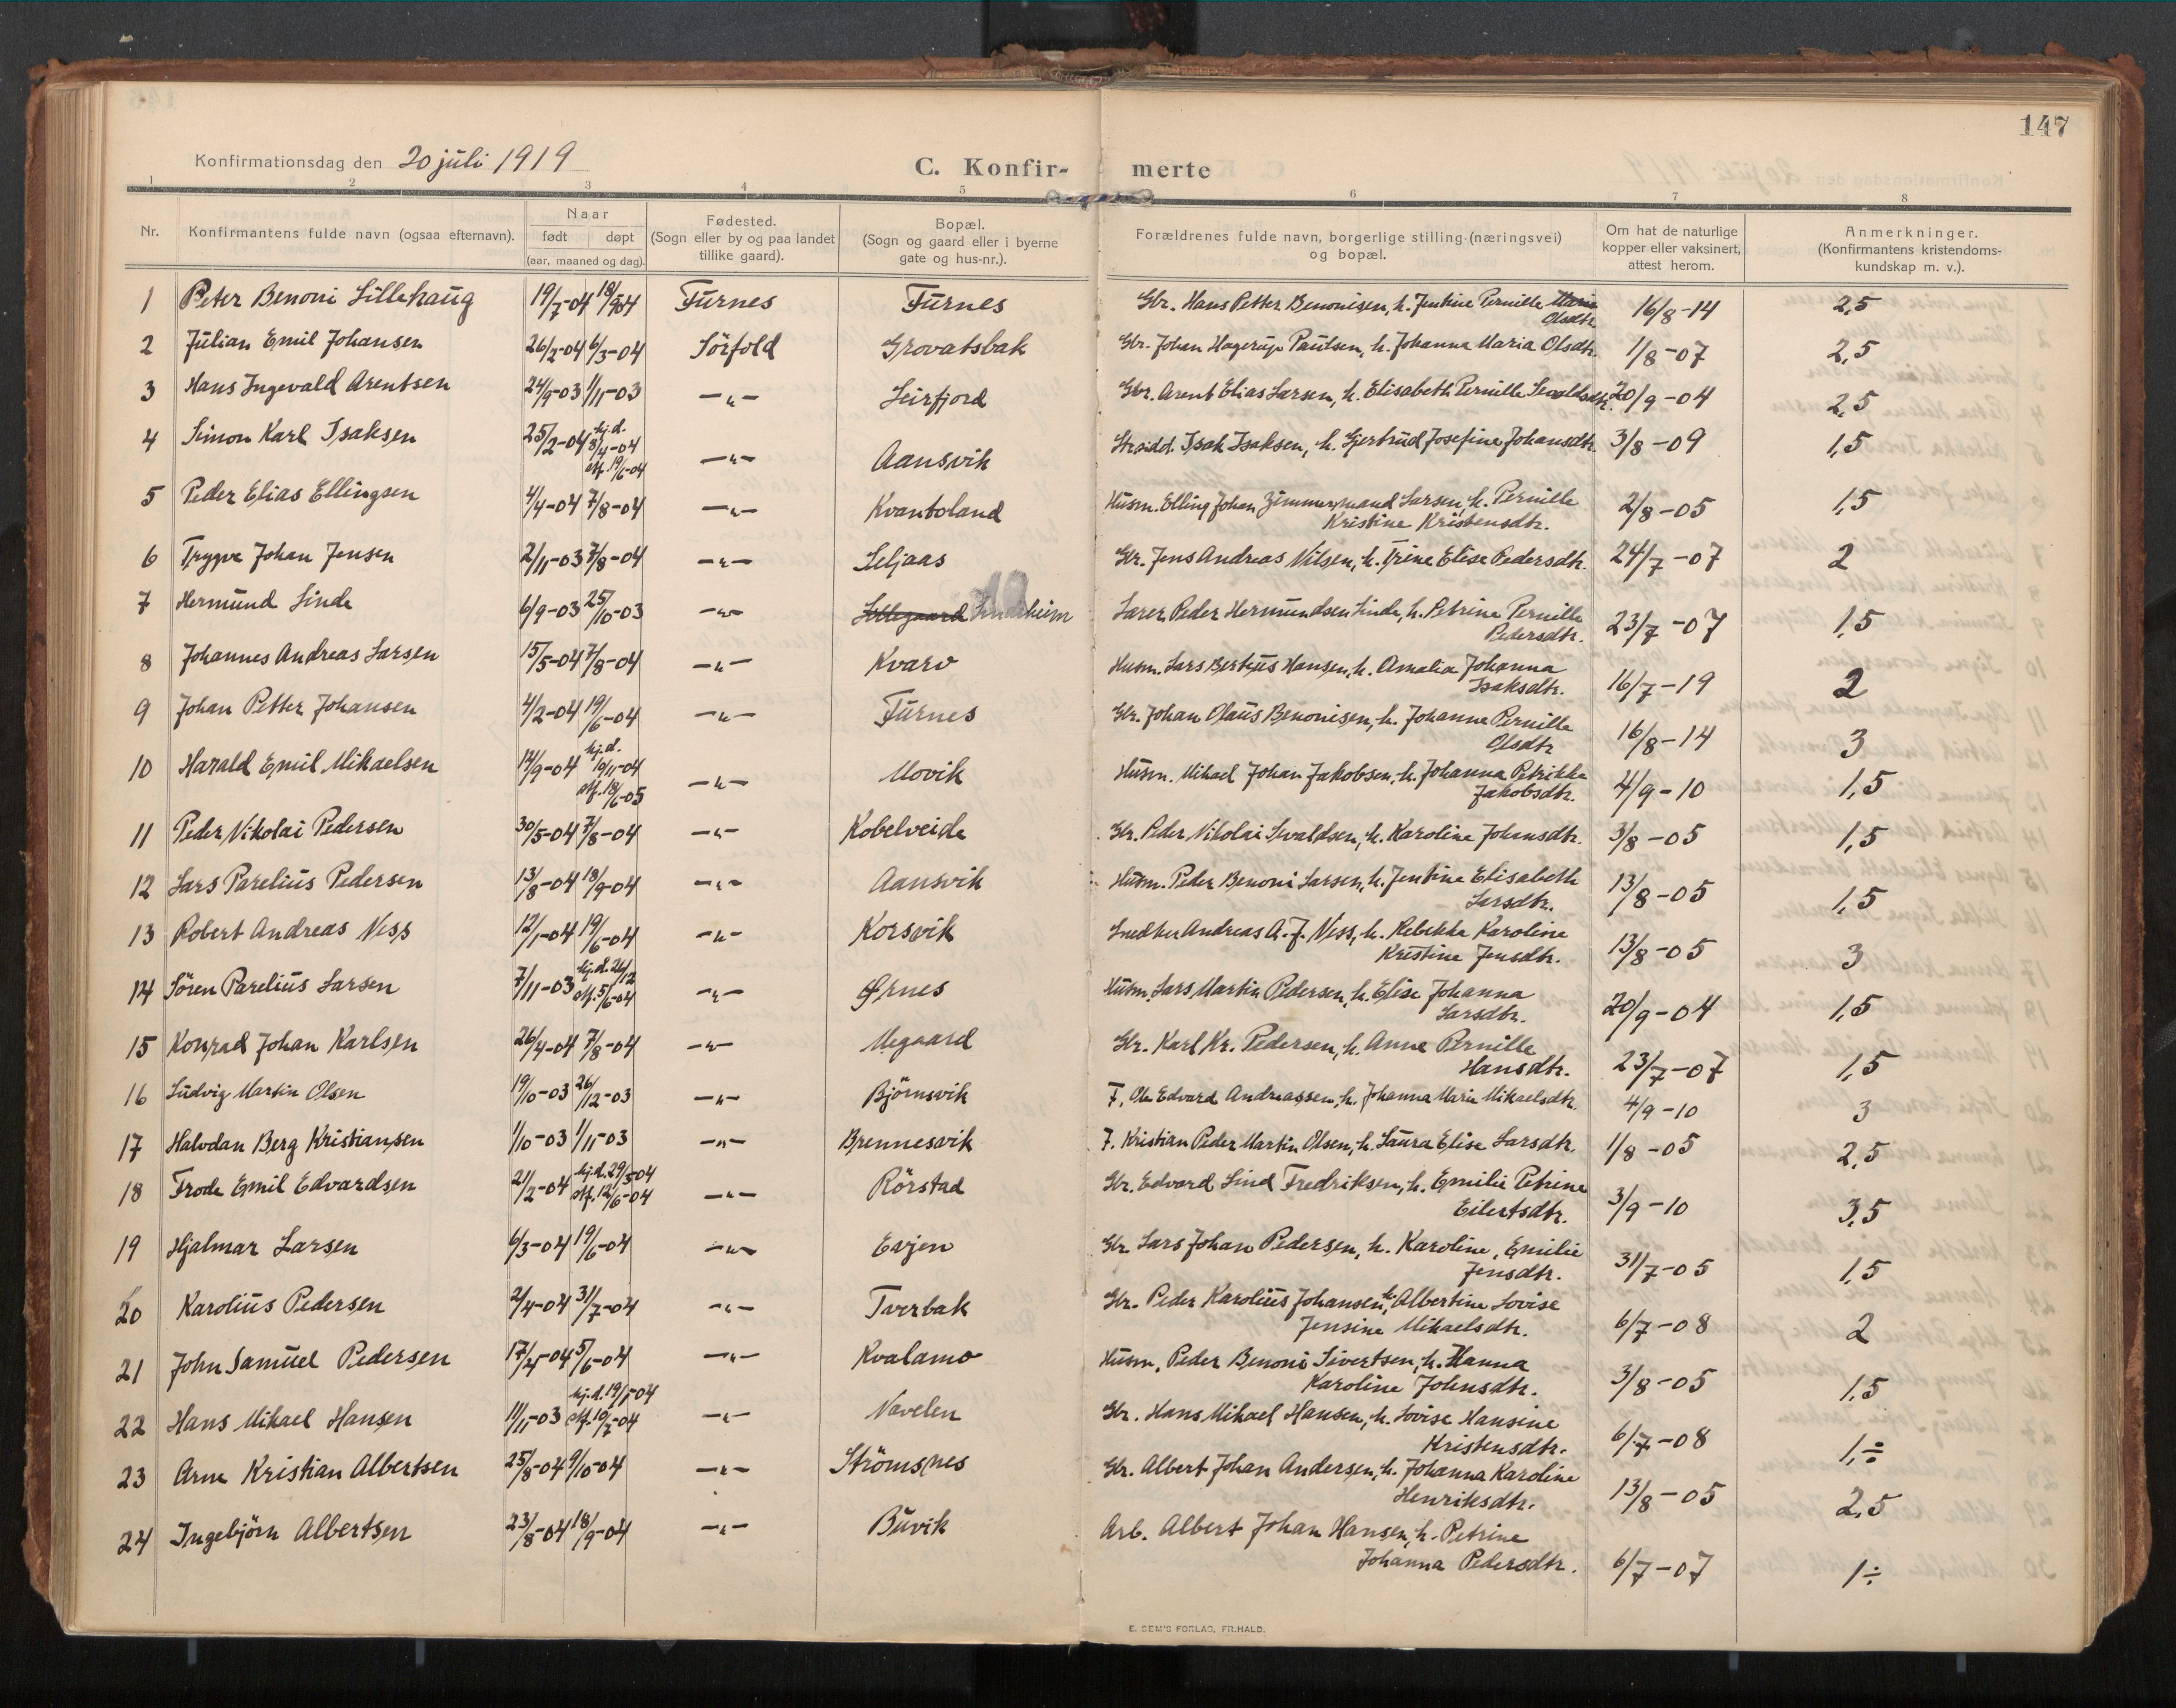 147
Konfirmationsdag den 20 juli 1919
C. Konfir- merte
1 2 3 4 5 6 7 8
Nr.
Konfirmantens fulde navn (ogsaa efternavn).
Naar
født døpt
(aar, maaned og dag).
Fødested.
(Sogn eller by og paa landet
tillike gaard).
Bopæl.
(Sogn og gaard eller i byerne
gate og hus-nr.).
Forældrenes fulde navn, borgerlige stilling (næringsvei)
og bopæl.
Om hat de naturlige
kopper eller vaksinert,
attest herom.
Anmerkninger.
(Konfirmantens kristendoms-
kundskap m. v.).
1 Peter Benoni Lillehaug 19/7-04 18/9-04 Furnes Furnes Gbr. Hans Petter Benonisen, h. Jentine Pernille Maria 16/8-14 2,5
Olsdtr.
2 Julian Emil Johansen 26/2-04 6/3-04 Sörfold Grovatsbak Gbr. Johan Hagerup Paulsen, h. Johanna Maria Olsdtr. 1/8-07 2,5
3 Hans Ingevald Arentsen 24/9-03 1/11-03 -"- Leirfjord Gbr. Arent Elias Larsen, h. Elisabeth Pernille 20/9-04 2,5
4 Simon Karl Isaksen 25/2-04 hj.d. 8/4-04 -"- Aansvik Isak Isaksen, h. Gjertrud Josefine Johansdtr. 3/8-09 1,5
stf. 19/6-04
5 Peder Elias Ellingsen 4/4-04 7/8-04 -"- Kvantoland Husm. Elling Johan Zimmermand Larsen, h. Pernille 2/8-05 1,5
Kristine Kristensdtr.
6 Trygve Johan Jensen 2/11-03 7/8-04 -"- Seljaas Gbr. Jens Andreas Nilsen, h. Trine Elise Pedersdtr. 24/7-07 2
7 Hermund Linde 6/9-03 25/10-03 -"- Lillegaard Lindeheim Lærer Peder Hermundsen Linde, h. Petrine Pernille 23/7-07 1,5
Pedersdtr.
8 Johannes Andreas Larsen 15/5-04 7/8-04 -"- Kvarv Husm. Lars Berteus Hansen, h. Amalia Johanna 16/7-19 2
Isaksdtr.
9 Johan Petter Johansen 4/2-04 19/6-04 -"- Furnes Gbr. Johan Olaus Benonisen, h. Johanne Pernille 16/8-14 3
Olsdtr
10 Harald Emil Mikaelsen 14/9-04 hj.d. 19/11-04 -"- Movik Husm. Mikael Johan Jakobsen, h. Johanna Petrikke 4/9-10 1,5
stf. 18/6-05 Jakobsdtr.
11 Peder Nikolai Pedersen 30/5-04 7/8-04 -"- Kobelveide Gbr. Peder Nikolai Sivaldsen, h. Karoline Johansdtr. 3/8-05 1,5
12 Lars Parelius Pedersen 13/8-04 18/9-04 -"- Aansvik Husm. Peder Benoni Larsen, h. Jentine Elisabeth 13/8-05 1,5
Larsdtr.
13 Robert Andreas Ness 12/1-04 19/6-04 -"- Korsvik Snedker Andreas A. J. Ness, h. Rebekka Karoline 13/8-05 3
Kristine Jensdtr.
14 Sören Parelius Larsen 7/11-03 hj.d. 26/12 -"- Ørnes Husm. Lars Martin Pedersen, h. Elise Johanna 20/9-04 1,5
stf. 5/6-04 Larsdtr.
15 Konrad Johan Karlsen 26/4-04 7/8-04 -"- Megaard Gbr. Karl Kr. Pedersen, h. Anne Pernille 23/7-07 1,5
Hansdtr.
16 Ludvig Martin Olsen 19/10-03 26/12-03 -"- Björnsvik F. Ole Edvard Andreassen, h. Johanna Marie Mikaelsdtr. 4/9-10 3
17 Halvdan Berg Kristiansen 1/10-03 1/11-03 -"- Brennesvik F. Kristian Peder Martin Olsen, h. Laura Elise Larsdtr. 1/8-05 2,5
18 Frode Emil Edvardsen 21/2-04 hj.d. 29/3-04 -"- Rörstad Gbr. Edvard Lind Fredriksen, h. Emilie Petrine 3/9-10 3,5
stf. 12/6-04 Eilertsdtr.
19 Hjalmar Larsen 6/3-04 19/6-04 -"- Evjen Gbr. Lars Johan Pedersen, h. Karoline, Emilie 31/7-05 1,5
Jensdtr.
20 Karolius Pedersen 2/4-04 31/7-04 -"- Tverbak Gbr. Peder Karolius Johansen, h. Albertine Lovise 6/7-08 2
Jensine Mikaelsdtr.
21 John Samuel Pedersen 17/4-04 5/6-04 -"- Kvalamo Husm. Peder Benoni Sivertsen, h. Hanna 3/8-05 1,5
Karoline Johnsdtr.
22 Hans Mikael Hansen 11/11-03 hj.d. 19/1-04 -"- Navelen Gbr. Hans Mikael Hansen, h. Lovise Hansine 6/7-08 1,÷
stf. 10/7-04 Kristensdtr.
23 Arne Kristian Albertsen 25/8-04 9/10-04 -"- Strömsnes Gbr. Albert Johan Andersen, h. Johanna Karoline 13/8-05 2,5
Henriksdtr.
24 Ingebjörn Albertsen 23/8-04 18/9-04 -"- Buvik Arb. Albert Johan Hansen, h. Petrine 6/7-07 1÷
Johanna Pedersdtr.
E. SEM'S FORLAG, FR.HALD.